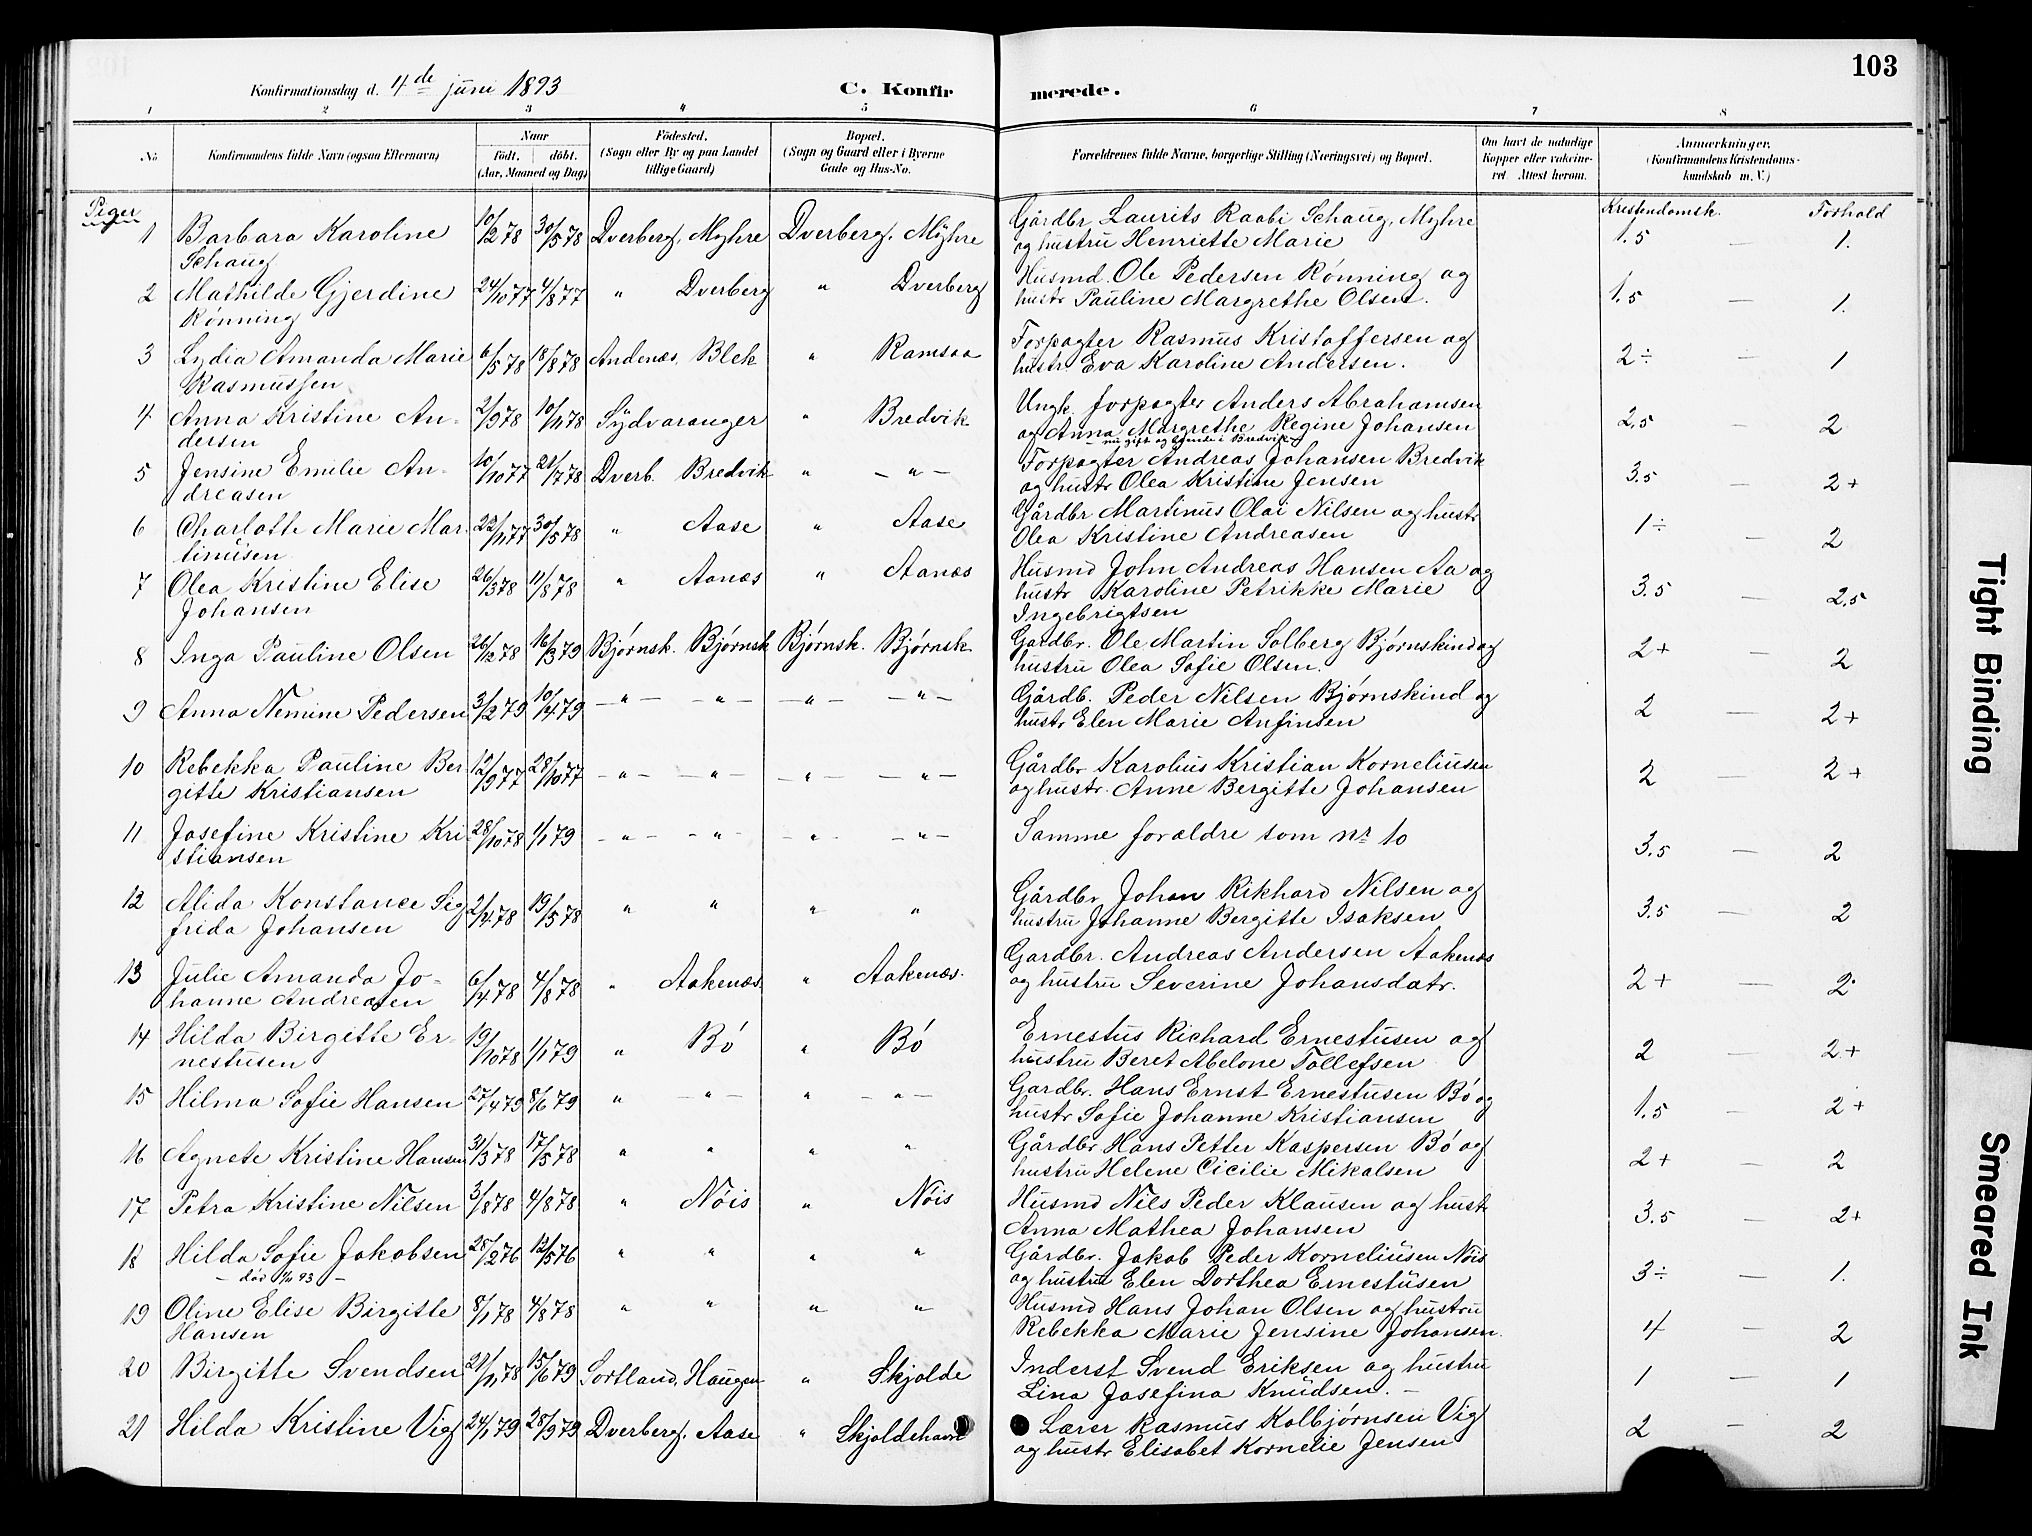 103
Konfirmationsdag d. 4de juni 1893
C. Konfirmerede.
1 2 3 4 5 6 7 8
No Konfirmandens fulde Navn (ogsaa Efternavn) Naar født. døbt. (Aar, Maaned og Dag) Fødested. (Sogn eller By og paa Landet tillige Gaard) Bopæl. (Sogn og Gaard eller i Byerne Gade og Hus-No. Forældrenes fulde Navne, borgerlige Stilling (Næringsvei) og Bopæl. Om havt de naturlige Kopper eller vakcineret. Attest herom. Anmærkninger. (Konfirmandens Kristendomskundskab m. V.)
Piger Kristendomsk. Forhold
1 Barbara Karoline 10/12 78 30/5 78 Dverberg, Myhre Dverberg, Myhre Gårdbr. Laurits Raabi Schaug, Myhre 1.5 — 1.
Schaug og hustru Henriette Marie
2 Mathilde Gjerdine 24/10 77 4/8 77 " Dverberg " Dverberg Husmd. Ole Pedersen Rønning og 1.5 — 1.
Rønning hustr Pauline Margrethe Olsen.
3 Lydia Amanda Marie 6/5 78 18/8 78 Andenæs, Blek " Ramsaa Forpagter Rasmus Kristoffersen og 2÷ — 1
Rasmussen hustr. Eva Karoline Andersen.
4 Anna Kristine An- 2/9 78 10/11 78 Sydvaranger " Bredvik Ungk. forpagter Anders Abrahamsen 2,5 — 2
dersen og Anna Margrethe Regine Johansen
nu gift og boende i Bredvik
5 Jensine Emilie An- 10/10 77 21/7 78 Dverb. Bredvik " — " — Forpagter Andreas Johansen Bredvik 3.5 — 2+
dreasen og hustr Olea Kristine Jensen
6 Charlotte Marie Mar- 22/11 77 30/5 78 " Aase " Aase Gårdbr Martinus Olai Nilsen og hustr 1÷ — 2
tinusen Olea Kristine Andreasen
7 Olea Kristine Elise 26/3 78 11/8 78 " Aanæs " Aanæs Husmd John Andreas Hansen Aa og 3.5 — 2,5
Johansen hustr Karoline Petrikke Marie
Ingebrigtsen
8 Inga Pauline Olsen 26/12 78 16/3 79 Bjørnsk. Bjørnsk Bjørnsk. Bjørnsk Gardbr. Ole Martin Solberg Bjørnskind og 2+ — 2
hustru Olea Sofie Olsen.
9 Anna Nemine Pedersen 3/2 79 10/4 79 — " — — " — — " — — " — Gårdb. Peder Nilsen Bjørnskind og 2 — 2+
hustr Elen Marie Anfinsen
10 Rebekka Pauline Ber- 12/9 77 28/10 77 — " — " — " — — " — Gårdbr Karolius Kristian Korneliusen 2 — 2+
gitte Kristiansen og hustr. Anne Bergitte Johansen
11 Josefine Kristine Kri- 28/10 78 1/1 79 — " — — " — — " — — " — Samme forældre som nr 10 3.5 — 2
stiansen
12 Alida Konstance Sig 2/4 78 19/5 78 " " " " Gårdbr Johan Rikhard Nilsen og 3.5 — 2
frida Johansen hustru Johanne Bergitte Isaksen
13 Julie Amanda Jo- 6/4 78 4/8 78 " Aakenæs " Aakenæs. Gardbr. Andreas Andersen Aakenæs 2+ — 2
hanne Andreasen og hustru Severine Johansdatr.
14 Hilda Birgitte Er- 19/10 78 1/1 79 " Bø " Bø Ernestus Richard Ernestusen og 2 2+
nestusen hustru Beret Abelone Tollefsen
15 Hilma Sofie Hansen 27/4 79 8/6 79 " — " — " — " — Gardbr. Hans Ernst Ernestusen Bø og 1.5 — 2+
hustr Sofie Johanne Kristiansen
16 Agnete Kristine Hansen 31/3 78 17/5 78 " " " " Gårdbr Hans Petter Kaspersen Bø og 2+ — 2
hustru Helene Cicilie Mikalsen
17 Petra Kristine Nilsen 3/1 878 4/8 78 " Nøis " Nøis Husmd Nils Peder Klausen og hust 3.5 — 2+
Anna Mathea Johansen
18 Hilda Sofie Jakobsen 25/2 76 12/5 76 " " " " Gårdbr. Jakob Peder Korneliusen Nøis 3÷ — 1.
og hustru Elen Dorthea Ernestusen
19 Oline Elise Birgitte 8/1 78 4/8 78 " " " " Husmd Hans Johan Olsen og hustru 4 — 2
Hansen Rebekka Marie Jensine Johansen.
20 Birgitte Svendsen 21/11 78 15/6 79 Sortland, Haugen " Skjolde Inderst Svend Eriksen og hustru 1 — 1
Lina Josefina Knudsen. —
21 Hilda Kristine Vig 24/1 79 28/9 79 Dverberg, Aase " Skjoldehavn Lærer Rasmus Kolbjørnsen Vig 2 — 2
og hustr Elisabet Kornelie Jensen
Tight Binding
Smeared Ink